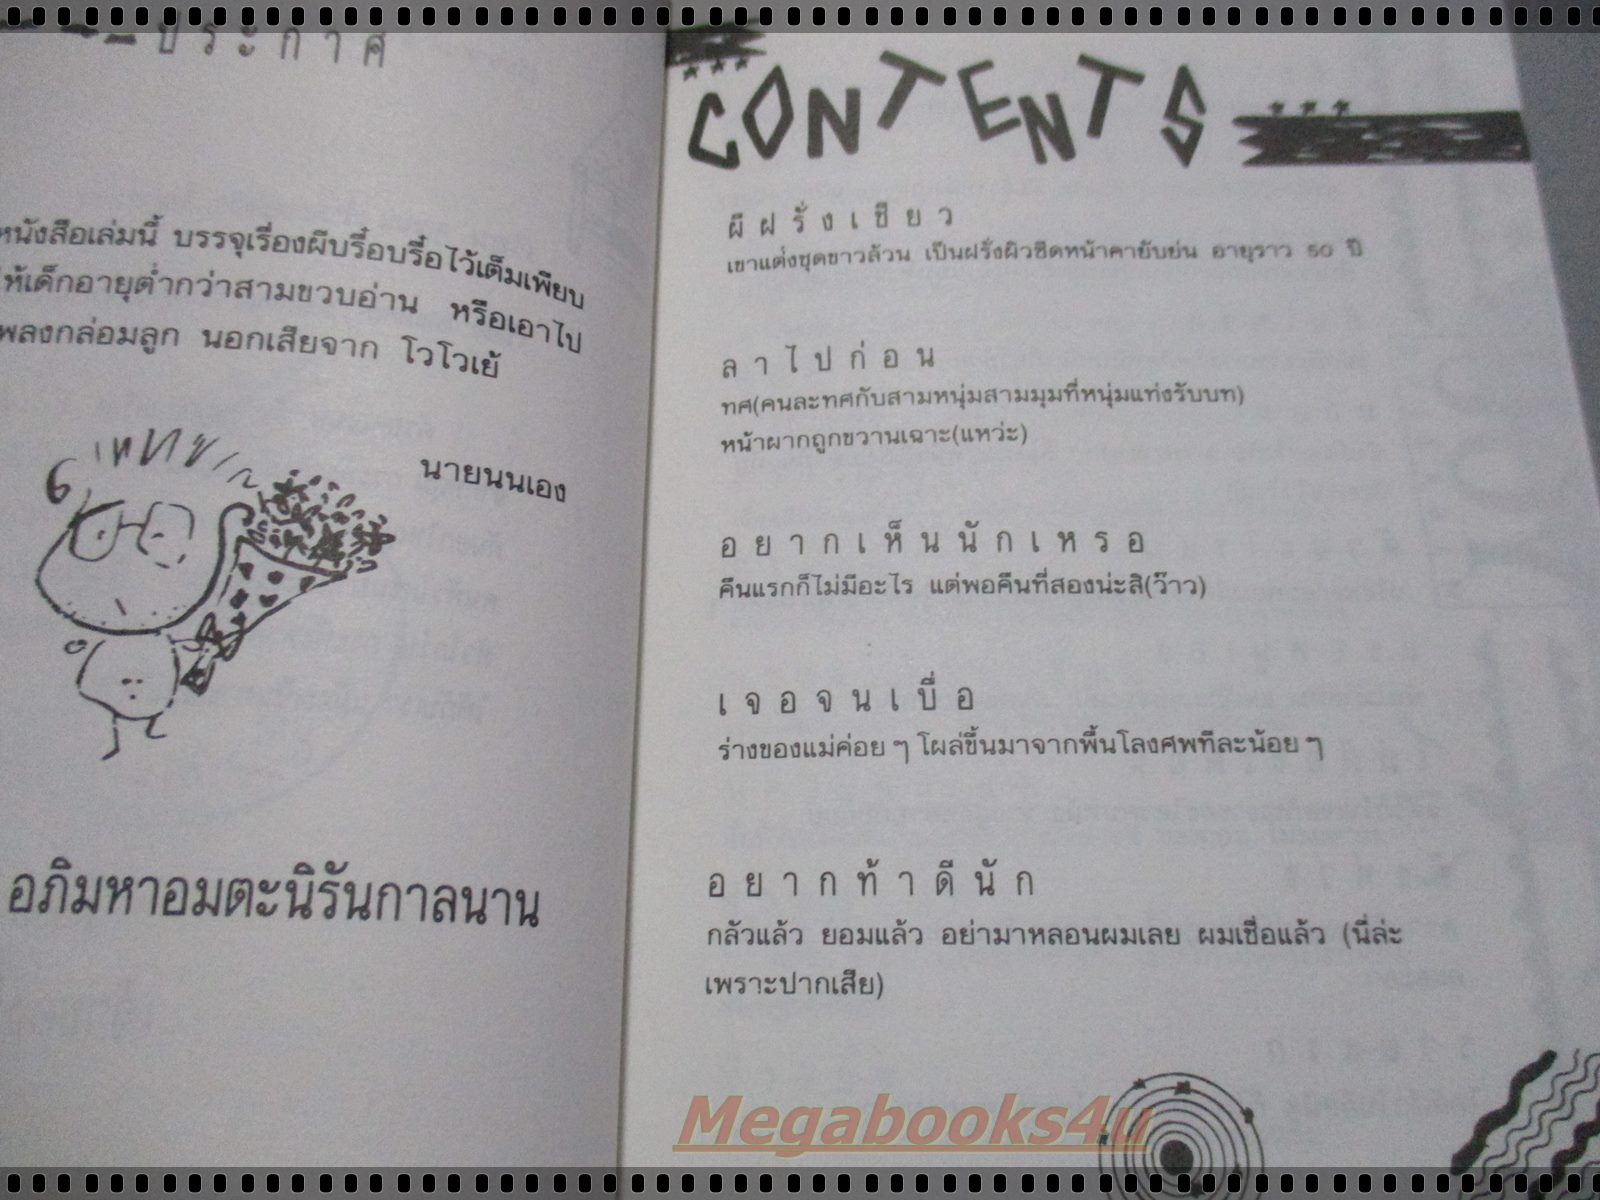 ประกาศ
หนังสือเล่มนี้ บรรจุเรื่องผีบรื๋อบรื๋อไว้เต็มเพียบ
ให้เด็กอายุต่ำกว่าสามขวบอ่าน หรือเอาไป
เพลงกล่อมลูก นอกเสียจาก โวโวเย้
นายนนเอง
อภิมหาอมตะนิรันกาลนาน
CONTENTS
ผีฝรั่งเซียว
เขาแต่งชุดขาวล้วน เป็นฝรั่งผิวซีดหน้าคายับย่น อายุราว 50 ปี
ลาไปก่อน
ทศ(คนละทศกับสามหนุ่มสามมุมที่หนุ่มแท่งรับบท)
หน้าผากถูกขวานเฉาะ(แหว่ะ)
อยากเห็นนักเหรอ
คืนแรกก็ไม่มีอะไร แต่พอคืนที่สองน่ะสิ(ว๊าว)
เจอจนเบื่อ
ร่างของแม่ค่อย ๆ โผล่ขึ้นมาจากพื้นโลงศพทีละน้อย ๆ
อยากท้าดีนัก
กลัวแล้ว ยอมแล้ว อย่ามาหลอนผมเลย ผมเชื่อแล้ว (นี่ล่ะ
เพราะปากเสีย)
Megabooks4u